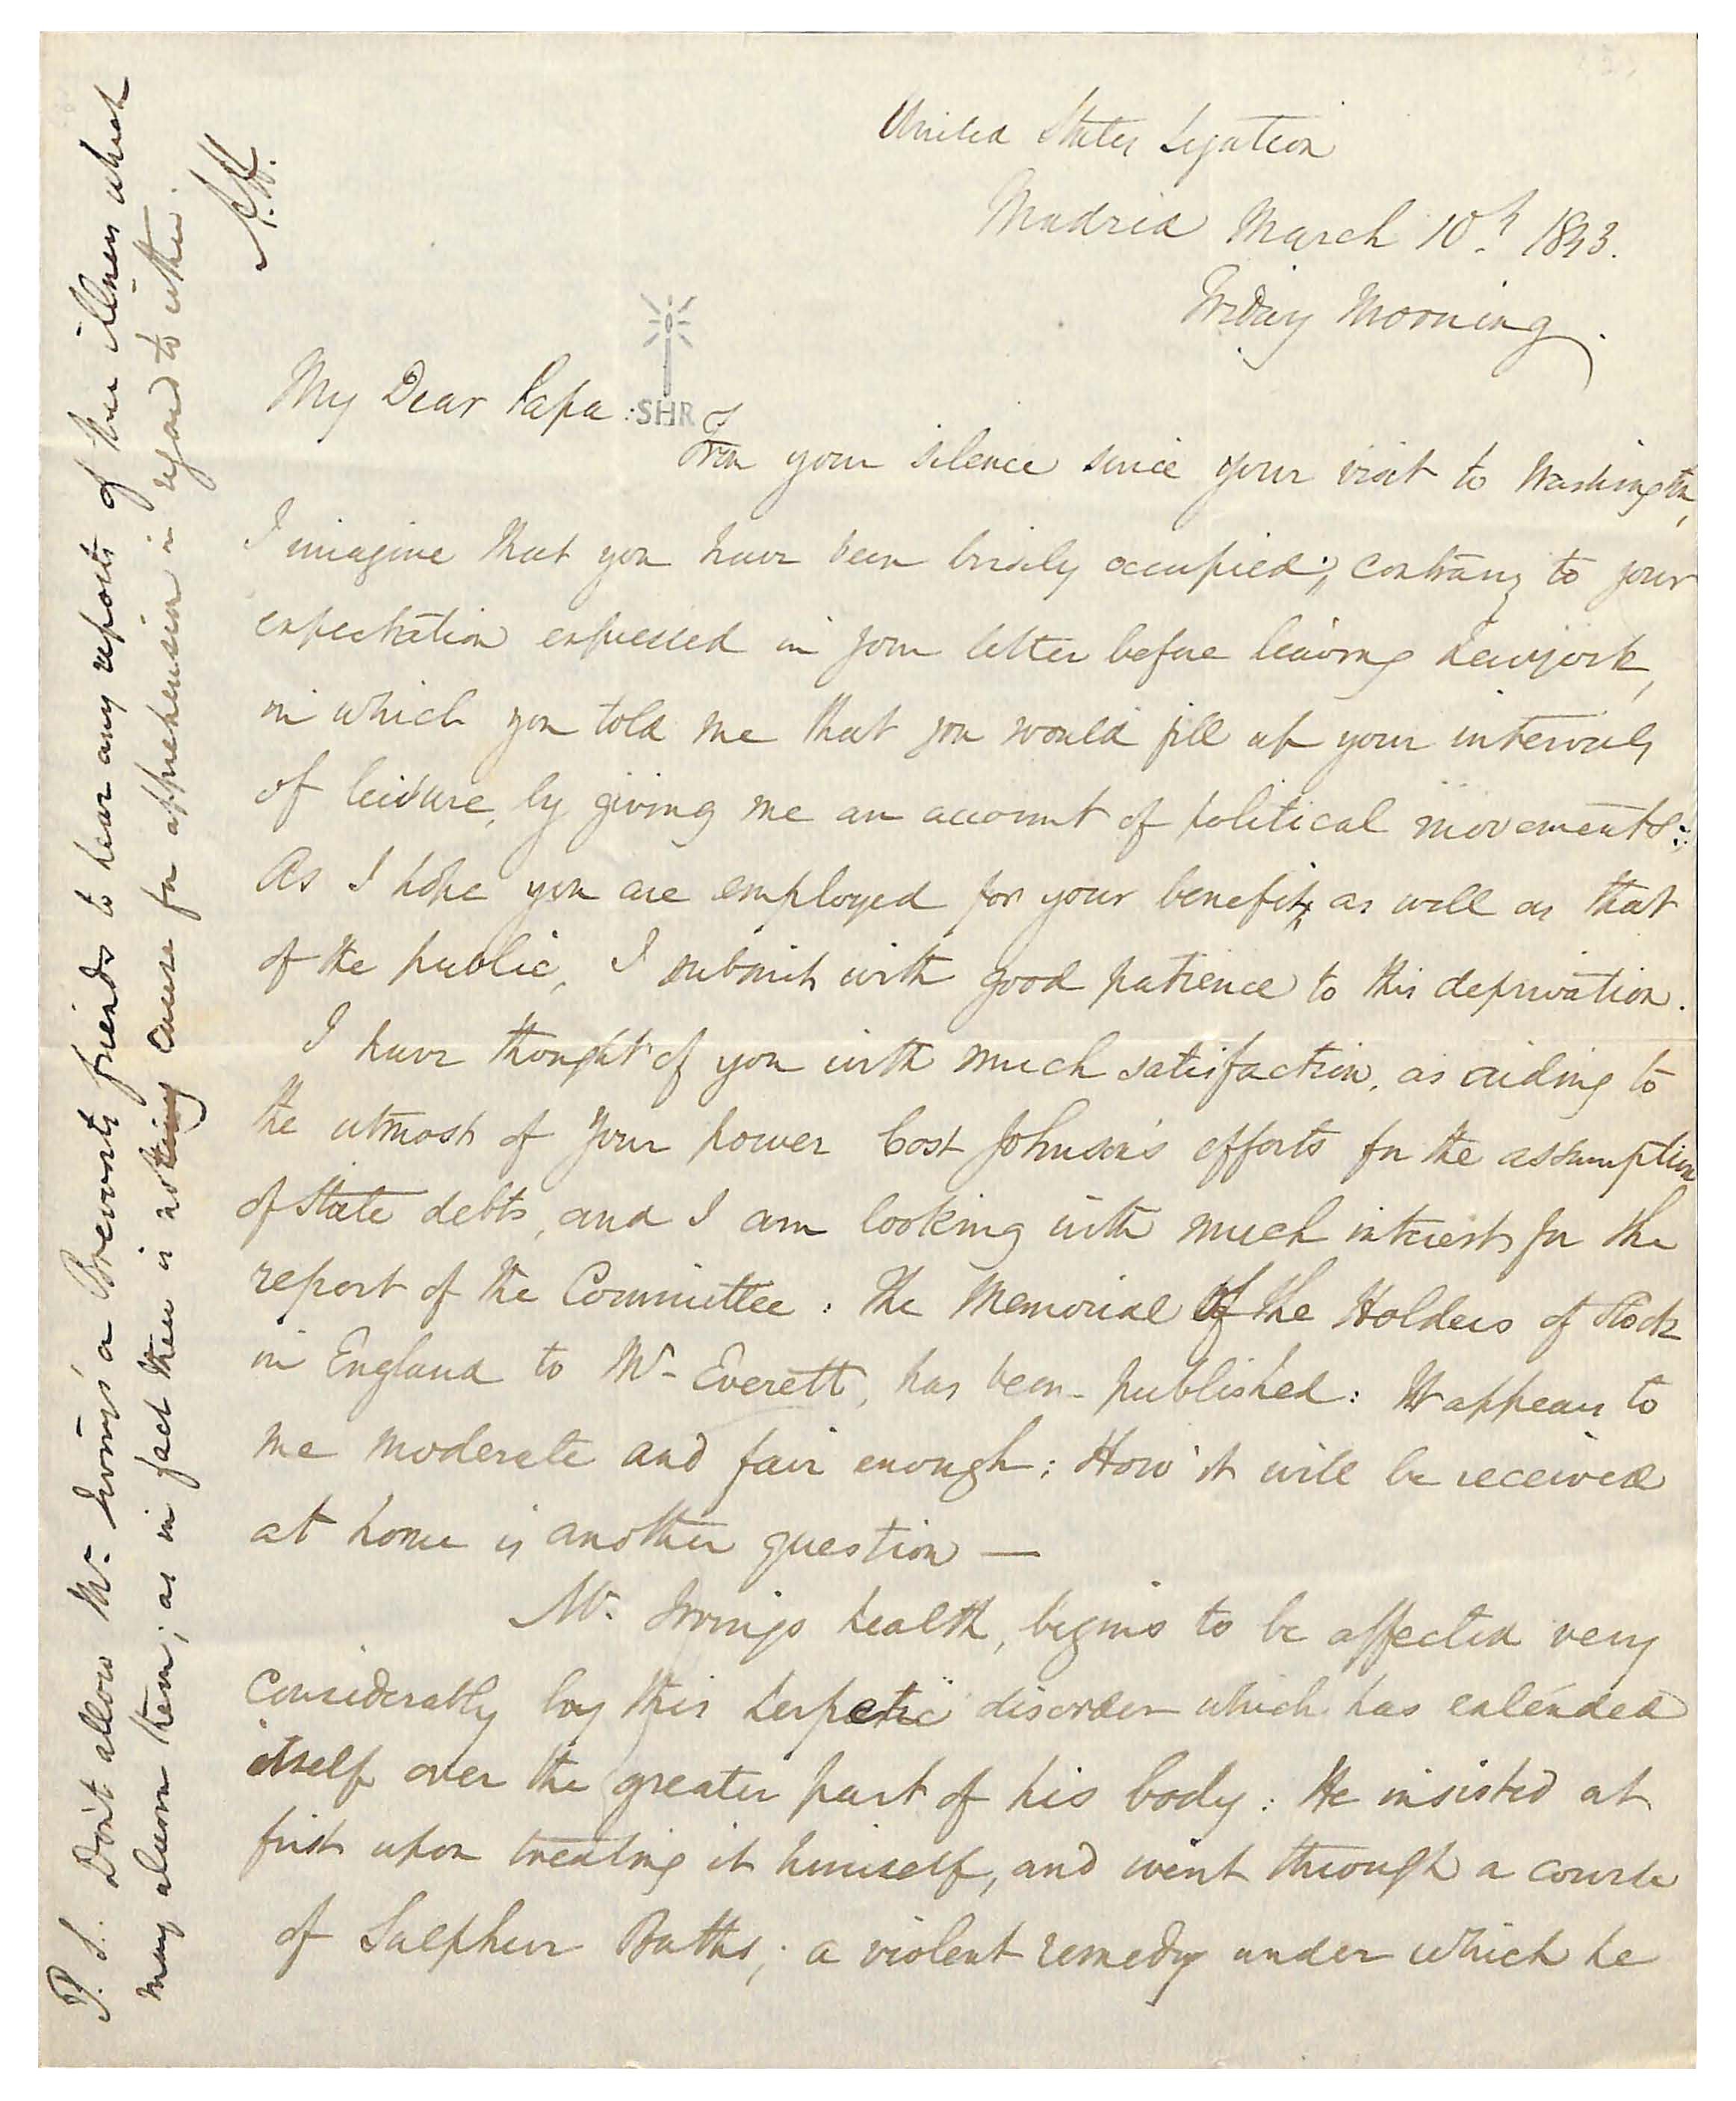 United States Legation
Madrid March 10th 1843.
Friday Morning.
My Dear Papa:
SHR
From your silence since your visit to Washington,
I imagine that you have been busily occupied; contrary to your
expectation expressed in your letter before leaving Newyork,
in which you told me that you would fill up your intervals
of leisure, by giving me an account of political movements:
As I hope you are employed for your benefit, as well as that
of the public, I submit with good patience to this deprivation.
I have thought of you with much satisfaction, as aiding to
the utmost of your power Cost Johnson's efforts for the assumption
of State debts, and I am looking with much interest for the
report of the Committee: The Memorial of the Holders of Stock
in England to Mr. Everett, has been published: It appears to
me moderate and fair enough: How it will be received
at home is another question —
Mr. Irvings health, begins to be affected very
considerably by this herpetic disorder which has extended
itself over the greater part of his body: He insisted at
first upon treating it himself, and went through a course
of Sulphur Baths; a violent remedy under which he
P.S. Don't allow Mr. Irving's a Brevoorts friends to hear any reports of his illness which
may alarm them; as in fact there is nothing cause for apprehension in regard to either.
A.H.